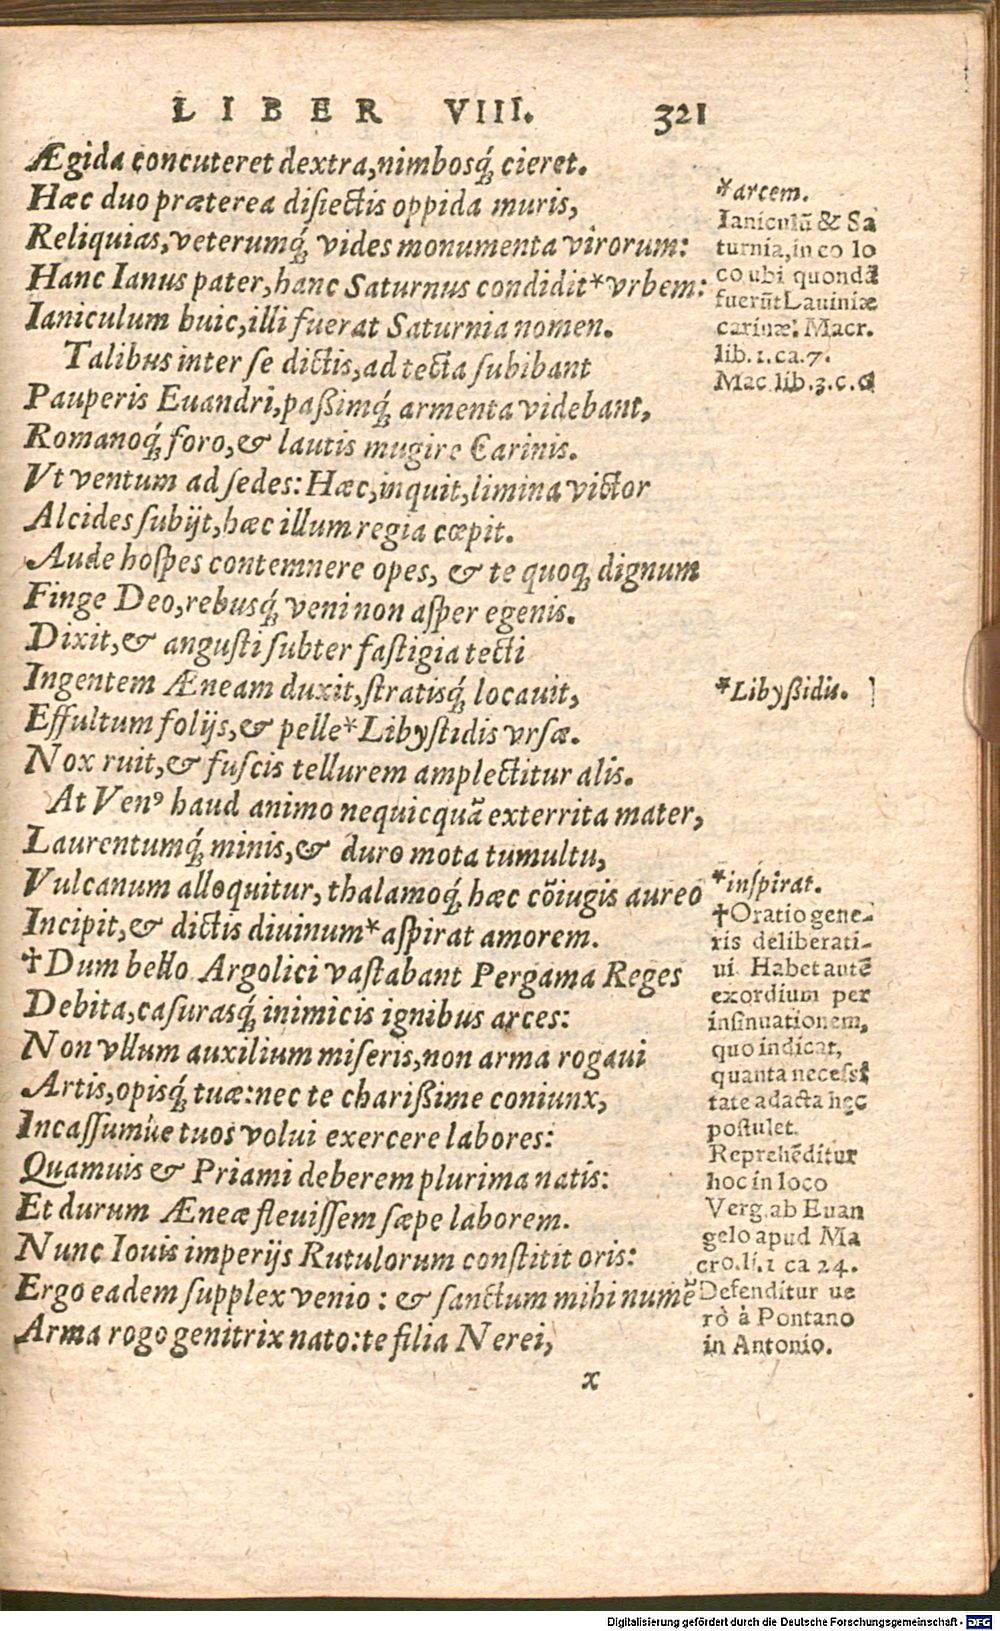 LIBER VIII. 321
Ægida concuteret dextra, nimbosq́; cieret.
Hæc duo præterea disiectis oppida muris,
Reliquias, veterumq́; vides monumenta virorum:
Hanc Ianus pater, hanc Saturnus condidit*vrbem:
Ianiculum huic, illi fuerat Saturnia nomen.
Talibus inter se dictis, ad tecta subibant
Pauperis Euandri, paßimq́; armenta videbant,
Romanoq́; foro, & lautis mugire Carinis.
Vt ventum ad sedes: Hæc, inquit, limina victor
Alcides subijt, hæc illum regia cœpit.
Aude hospes contemnere opes, & te quoq; dignum
Finge Deo, rebusq́; veni non asper egenis.
Dixit, & angusti subter fastigia tecti
Ingentem Æneam duxit, stratisq́; locauit,
Effultum folijs, & pelle*Libystidis vrsæ.
Nox ruit, & fuscis tellurem amplectitur alis.
At Venꝰ haud animo nequicquã exterrita mater,
Laurentumq́; minis, & duro mota tumultu,
Vulcanum alloquitur, thalamoq́; hæc cõiugis aureo
Incipit, & dictis diuinum*aspirat amorem.
†Dum bello Argolici vastabant Pergama Reges
Debita, casurasq́; inimicis ignibus arces:
Non vllum auxilium miseris, non arma rogaui
Artis, opisq́; tuæ: nec te charißime coniunx,
Incassumùe tuos volui exercere labores:
Quamuis & Priami deberem plurima natis:
Et durum Æneæ fleuissem sæpe laborem.
Nunc Iouis imperijs Rutulorum constitit oris:
Ergo eadem supplex venio: & sanctum mihi numẽ
Arma rogo genitrix nato: te filia Nerei,
x
*arcem.
Ianiculũ & Sa
turnia, in eo lo
co ubi quondã
fuerũt Lauiniæ
carinæ. Macr.
lib. 1. ca. 7.
Mac lib. 3. c. 6
*Libyßidis.
*inspirat.
†Oratio gene-
ris deliberati-
ui. Habet autẽ
exordium per
insinuationem,
quo indicat,
quanta necessi
tate adacta hęc
postulet.
Reprehẽditur
hoc in loco
Verg. ab Euan
gelo apud Ma
cro. li. 1 ca 24.
Defenditur ue
rò à Pontano
in Antonio.
Digitalisierung gefördert durch die Deutsche Forschungsgemeinschaft - DFG